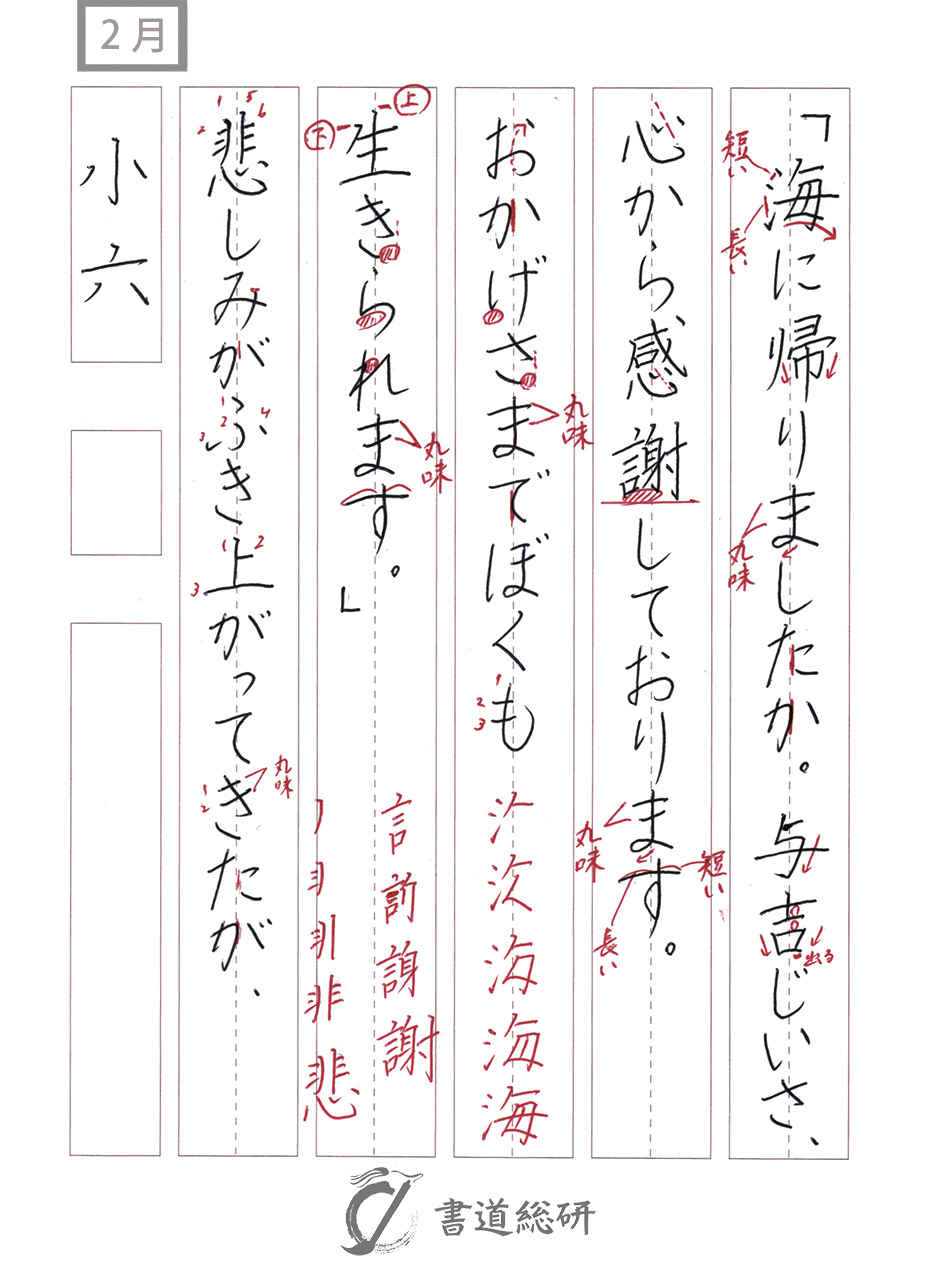 2月
「海に帰りましたか。与吉じいさ、
短い
長い
丸味
出る
心から感謝しております。
丸味
短い
長い
おかげさまでぼくも
1
2
3
丸味
氵 海 海 海
生きられます。」
上
下
丸味
言 謝
悲しみがふき上がってきたが、
1 5
2 6
1
2
3 4
1 2
3
丸味
1
2
非 悲
小六
書道総研